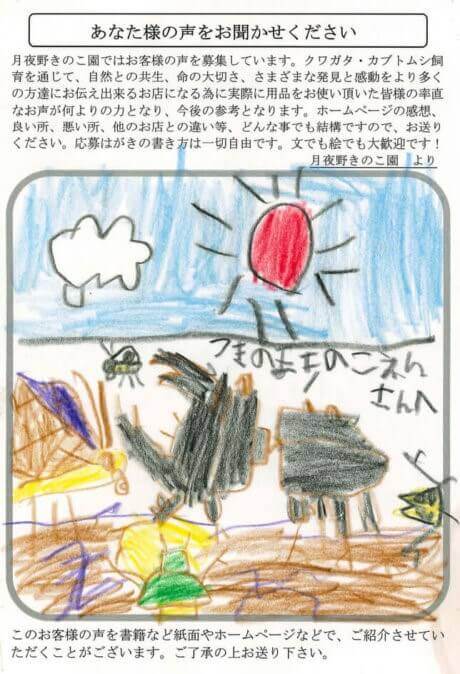 あなた様の声をお聞かせください
月夜野きのこ園ではお客様の声を募集しています。クワガタ・カブトムシ飼
育を通じて、自然との共生、命の大切さ、さまざまな発見と感動をより多く
の方達にお伝え出来るお店になる為に実際に用品をお使い頂いた皆様の率直
なお声が何よりの力となり、今後の参考となります。ホームページの感想、
良い所、悪い所、他のお店との違い等、どんな事でも結構ですので、お送り
ください。応募はがきの書き方は一切自由です。文でも絵でも大歓迎です！
月夜野きのこ園　より
つきのよきのこえん
さんへ
このお客様の声を書籍など紙面やホームページなどで、ご紹介させてい
ただくことがございます。ご了承の上お送り下さい。